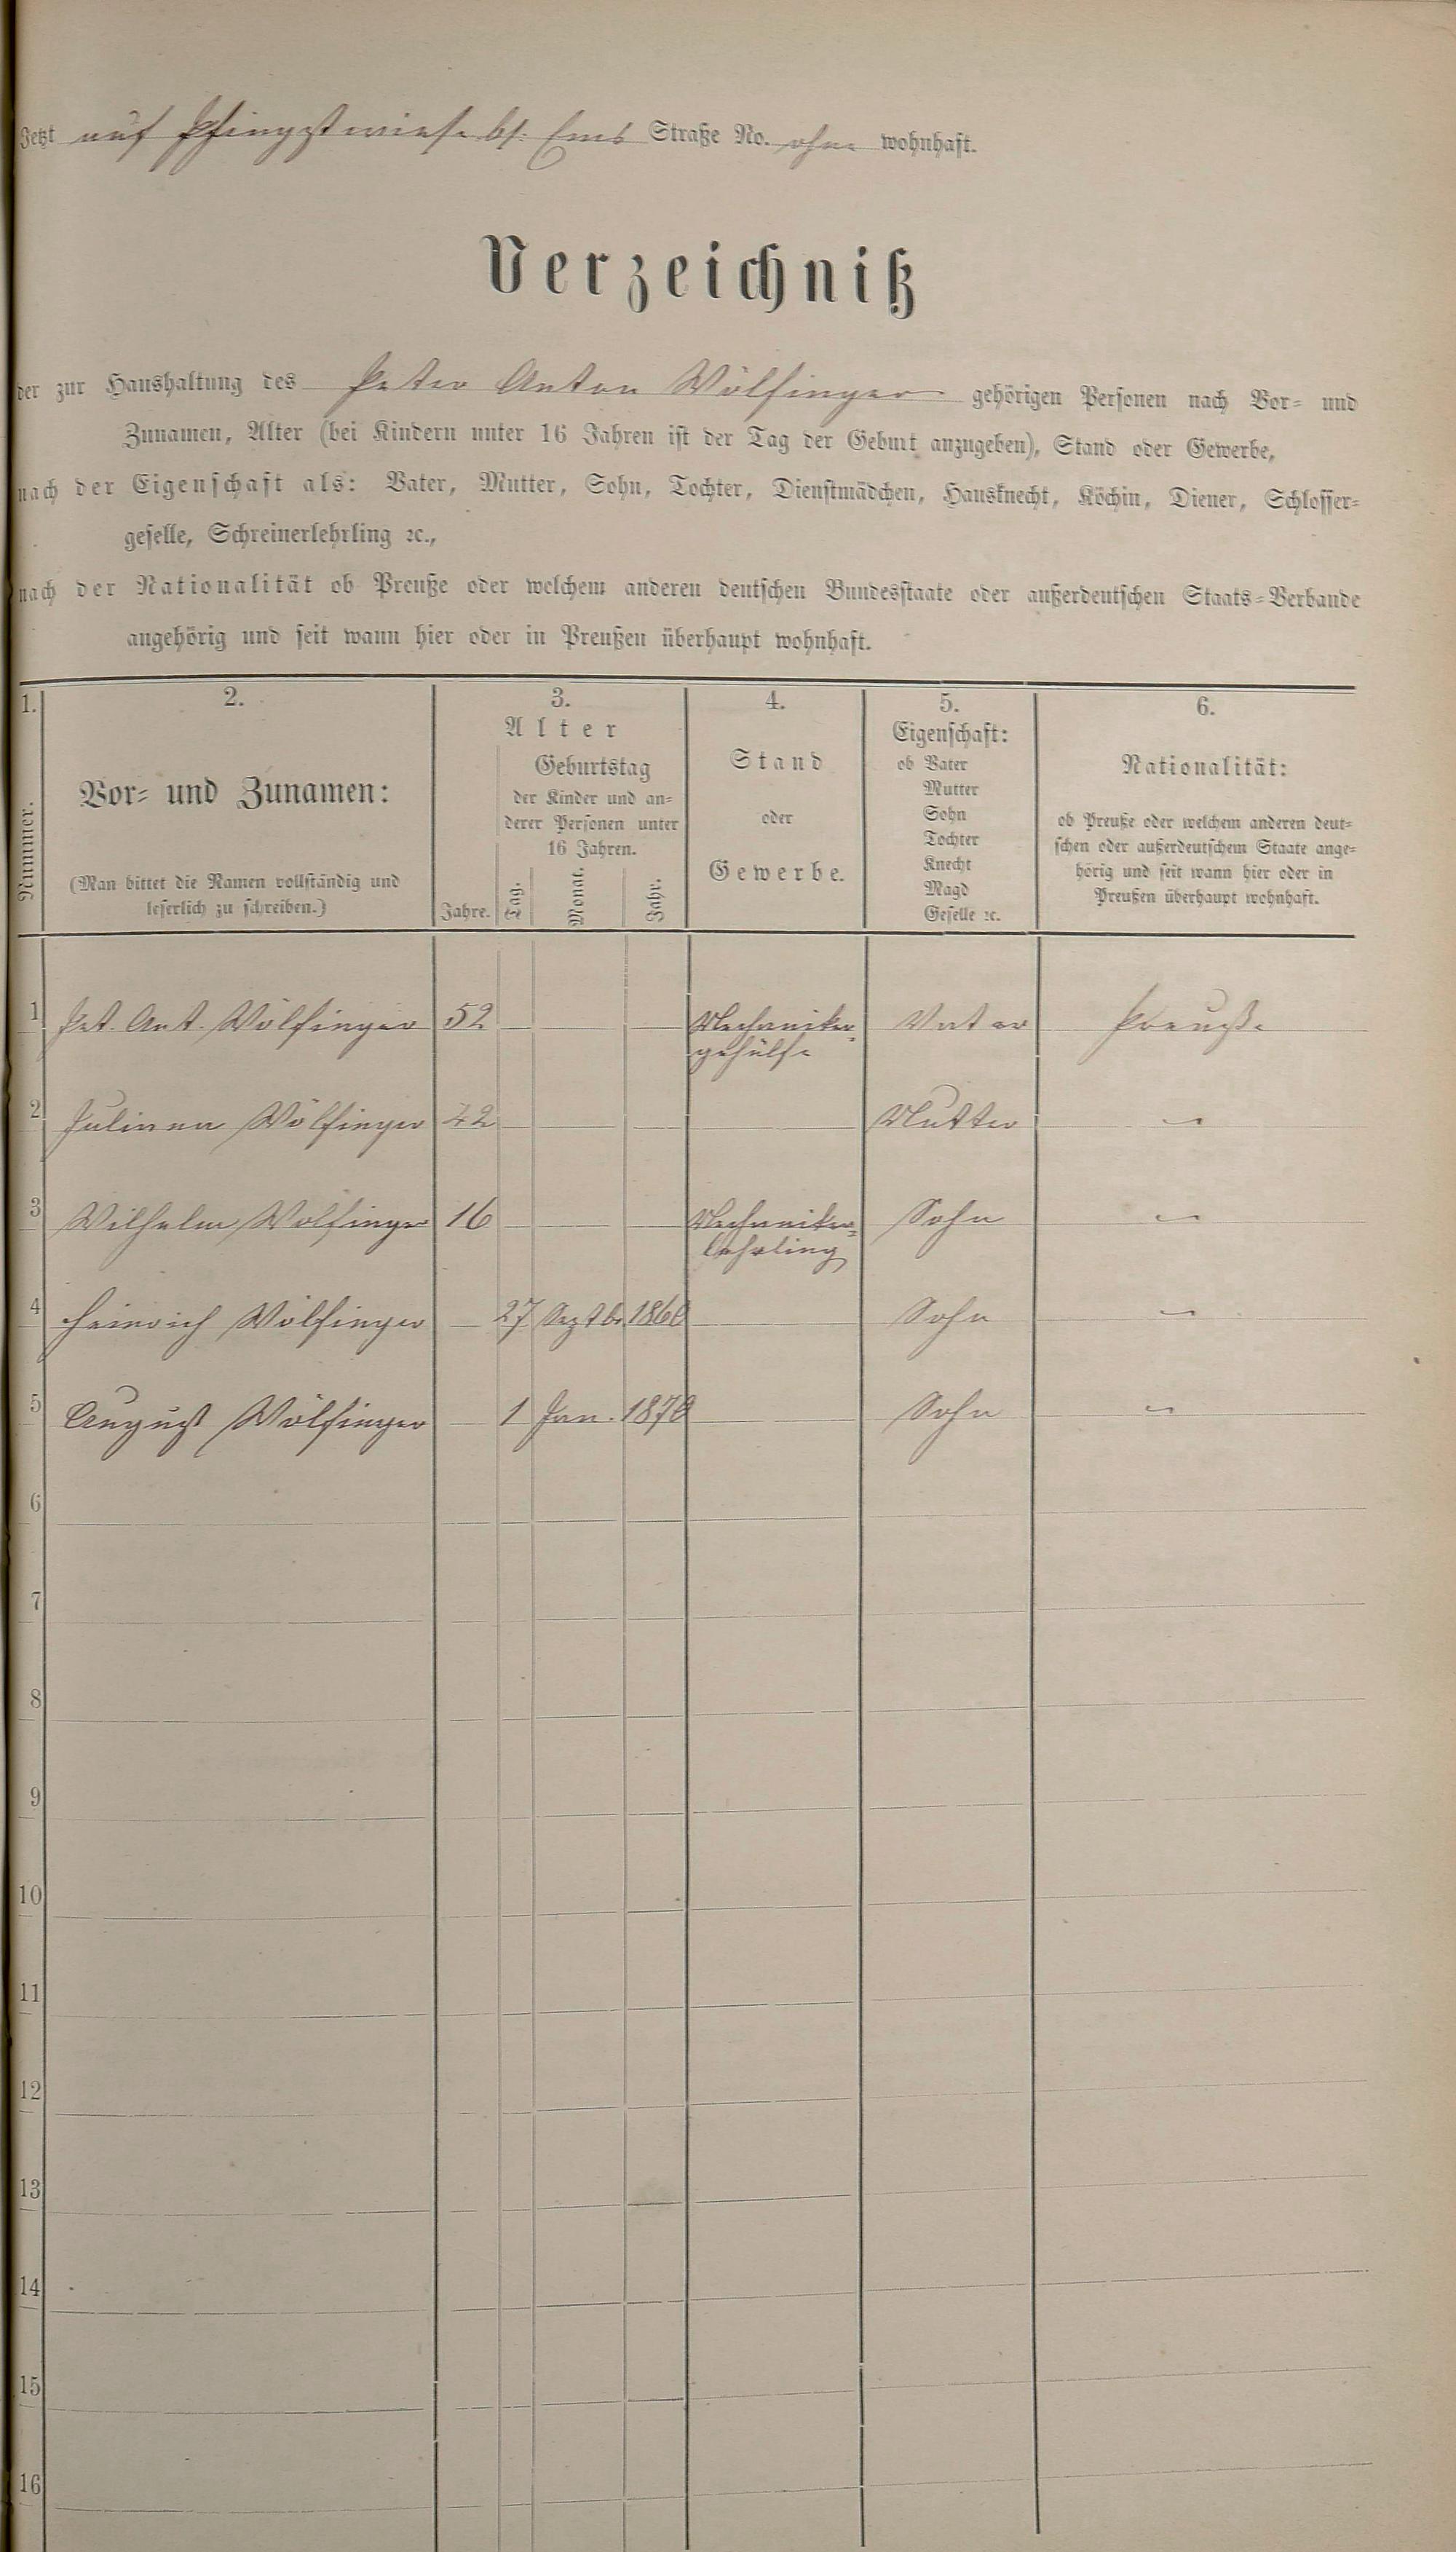 Jetzt auf Pfingstwiese bs. Ems Straße No. ohne wohnhaft.
Verzeichniß
der zur Haushaltung des Peter Anton Wölfinger gehörigen Personen nach Vor- und
Zunamen, Alter (bei Kindern unter 16 Jahren ist der Tag der Geburt anzugeben), Stand oder Gewerbe,
nach der Eigenschaft als: Vater, Mutter, Sohn, Tochter, Dienstmädchen, Hausknecht, Köchin, Diener, Schlosser-
geselle, Schreinerlehrling ꝛc.,
nach der Nationalität ob Preuße oder welchem anderen deutschen Bundesstaate oder außerdeutschen Staats-Verbande
angehörig und seit wann hier oder in Preußen überhaupt wohnhaft.
1.
Nummer.
2.
Vor- und Zunamen:
(Man bittet die Namen vollständig und
leserlich zu schreiben.)
3.
Alter
Geburtstag
der Kinder und an-
derer Personen unter
16 Jahren.
Jahre. Tag. Monat. Jahr.
4.
Stand
oder
Gewerbe.
5.
Eigenschaft:
ob Vater
Mutter
Sohn
Tochter
Knecht
Magd
Geselle ꝛc.
6.
Nationalität:
ob Preuße oder welchem anderen deut-
schen oder außerdeutschem Staate ange-
hörig und seit wann hier oder in
Preußen überhaupt wohnhaft.
1 Pet. Ant. Wölfinger 52 Mechaniker- Vater Preuße
gehülfe
2 Julianna Wölfinger 42 Mutter "
3 Wilhelm Wölfinger 16 Mechaniker- Sohn "
lehrling
4 Heinrich Wölfinger 27 Septbr. Sohn "
5 August Wölfinger 1 Jan. Sohn "
6
7
8
9
10
11
12
13
14
15
16